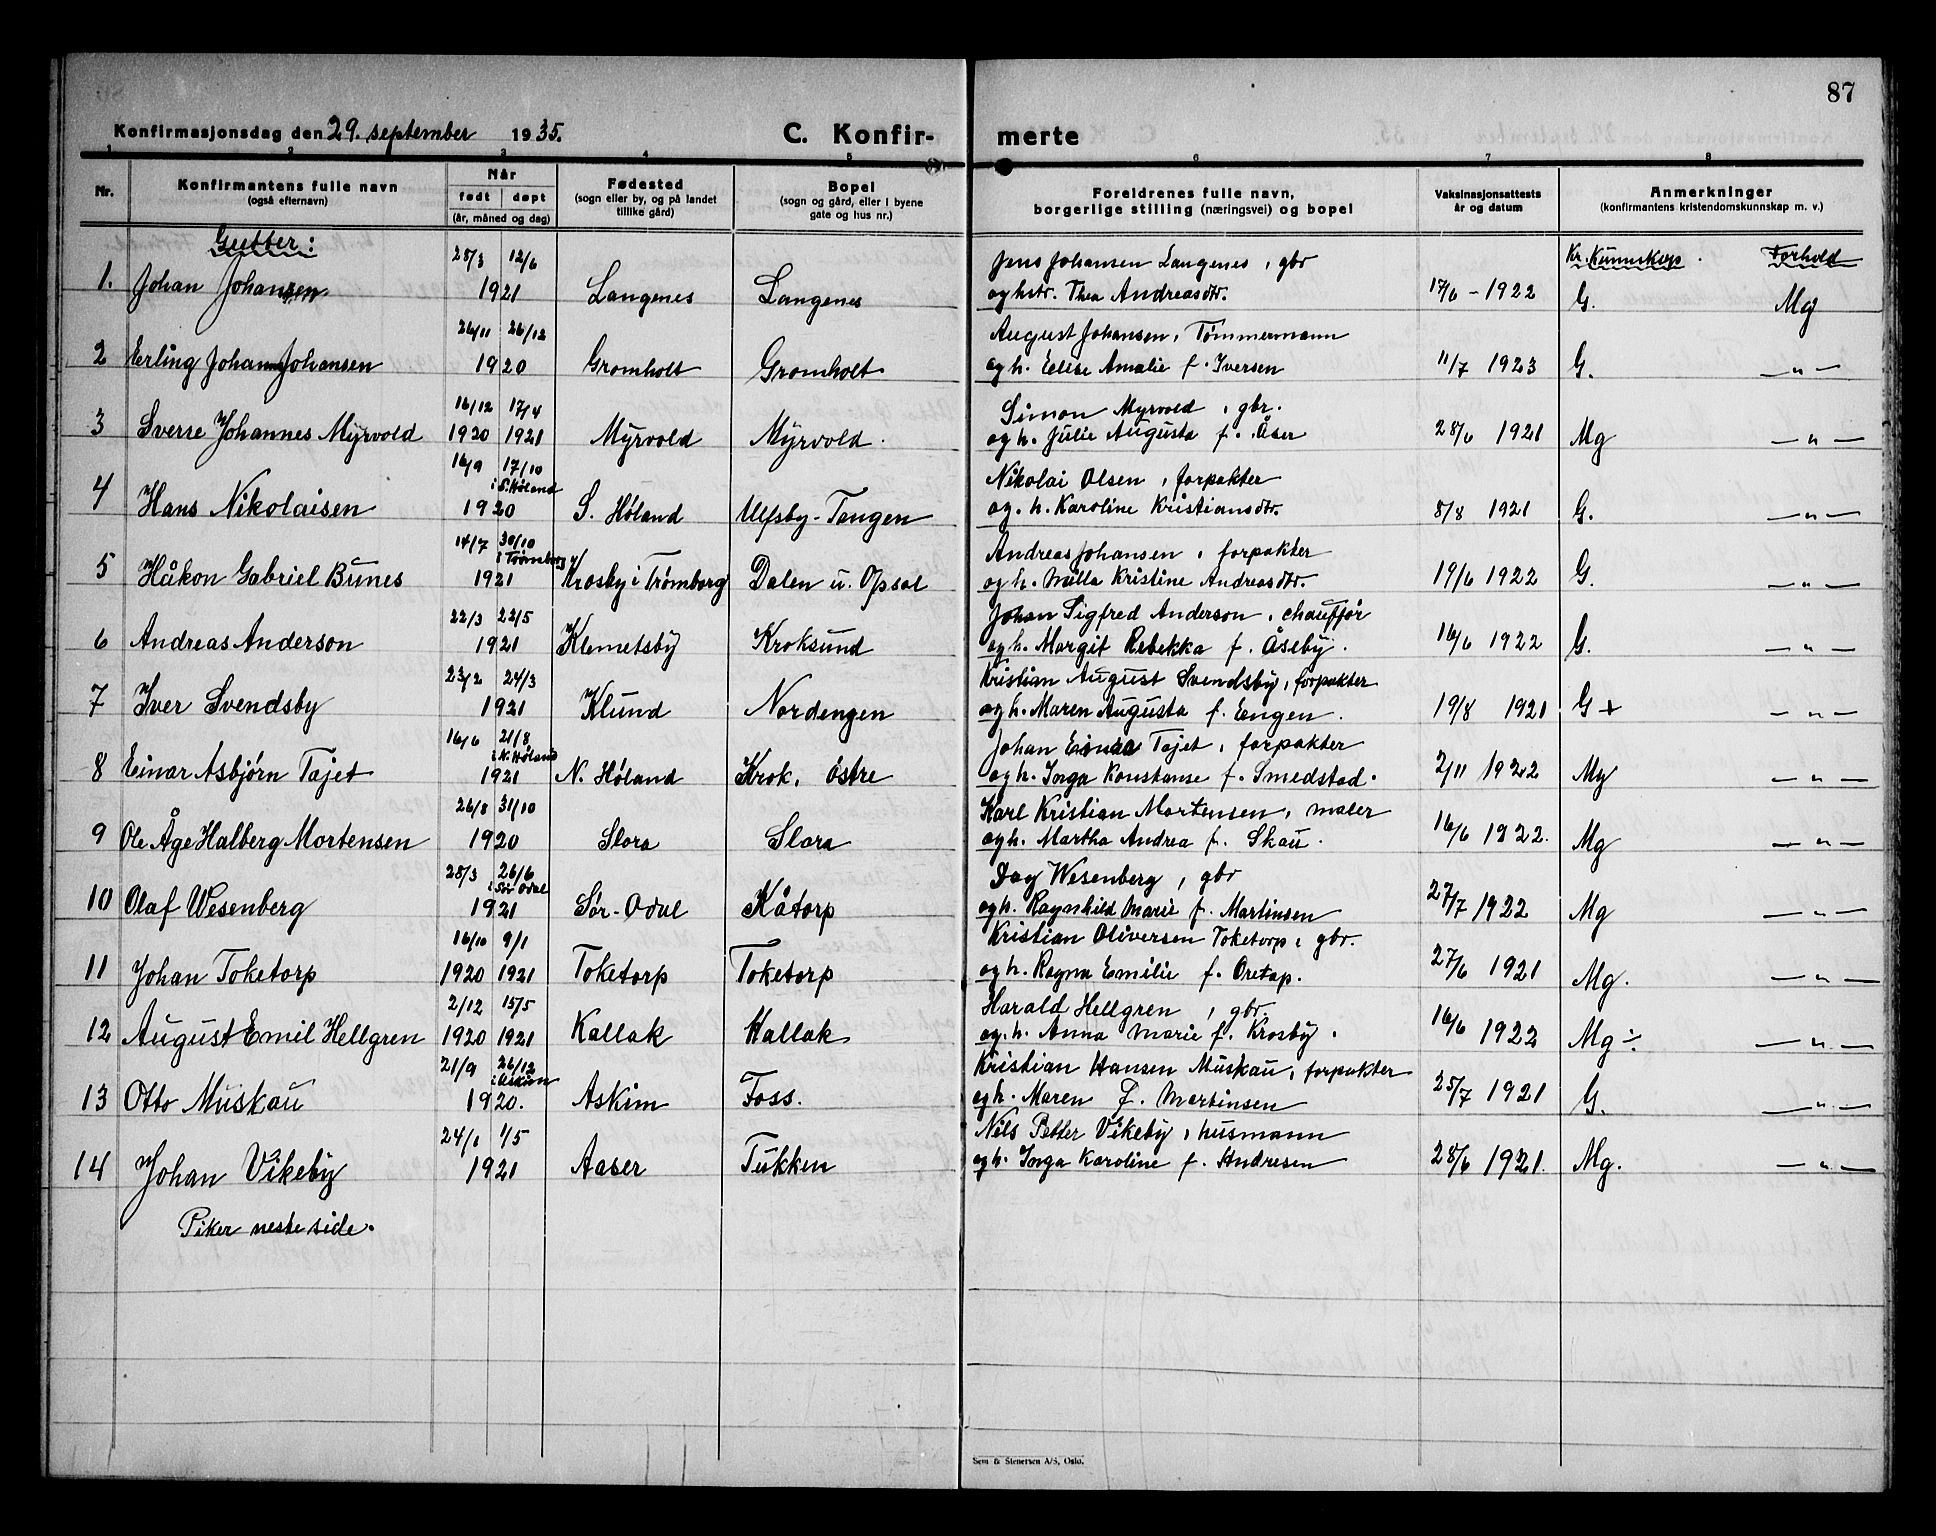 87
Konfirmasjonsdag den 29. september 1935.
C. Konfir-
merte
1 2 3 4 5 6 7 8
Nr.
Konfirmantens fulle navn
(også efternavn)
Når
født døpt
(år, måned og dag)
Fødested
(sogn eller by, og på landet
tillike gård)
Bopel
(sogn og gård, eller i byene
gate og hus nr.)
Foreldrenes fulle navn,
borgerlige stilling (næringsvei) og bopel
Vaksinasjonsattests
år og datum
Anmerkninger
(konfirmantens kristendomskunnskap m. v.)
Gutter:
Kr. Kunnskap. Forhold
28/3 12/6 Jens Johansen Langenes, gbr
1. Johan Johansen 1921 Langenes Langenes og hstr. Thea Andreasdtr. 17/6 - 1922 G. Mg
26/11 26/12 August Johansen, Tømmermann
2 Erling Johan Johansen 1920 Gromholt Gromholt og h. Eelise Amalie f. Iversen 11/7 1923 G. — " —
16/12 17/4 Simon Myrvold, gbr.
3 Sverre Johannes Myrvold 1920 1921 Myrvold Myrvold. og h. Julie Augusta f. Åser 28/6 1921 Mg — " —
16/9 17/10 Nikolai Olsen, forpakter
i S. Høland
4 Hans Nikolaisen 1920 S. Høland Ulfsby-Tangen og. h. Karoline Kristiansdtr. 8/8 1921 G. — " —
14/7 30/10 Andreas Johansen, forpakter
i Trømborg
5 Håkon Gabriel Bunes 1921 Krosby i Trømborg Dalen u. Opsal og h. Milla Kristine Andreasdtr. 19/6 1922 G. — " —
22/3 22/5 Johan Sigfred Anderson, chauffør
6 Andreas Anderson 1921 Klemetsby Kroksund og h. Margit Rebekka f. Åseby. 16/6 1922 G. — " —
23/2 24/3 Kristian August Svendsby, forpakter
7 Iver Svendsby 1921 Klund Nordengen og h. Maren Augusta f. Engen. 19/8 1921 G + — " —
16/6 21/8 Johan Tajet, forpakter
i N. Høland
8 Einar Asbjørn Tajet 1921 N. Høland Krok, østre og h. Inga Konstanse f. Smedstad. 2/11 1922 Mg — " —
26/8 31/10 Karl Kristian Mortensen, maler
9 Ole Åge Halberg Mortensen 1920 Slora Slora og h. Martha Andrea f. Skau. 16/6 1922. Mg — " —
28/3 26/6 Dag Wesenberg, gbr
i Sør Odal
10 Olaf Wesenberg 1921 Sør-Odal Kåtorp og h. Ragnhild Marie f. Martinsen 27/7 1922 Mg — " —
16/10 9/1 Kristian Oliversen Toketorp, gbr.
11 Johan Toketorp 1920 1921 Toketorp Toketorp og h. Ragna Emilie f. Oretop. 27/6 1921 Mg. — " —
2/12 15/5 Harald Hellgren, gbr.
12 August Emil Hellgren 1920 1921 Kallak Kallak og. h. Anna Marie f. Krosby. 16/6 1922 Mg ÷ — " —
21/9 26/12 Kristian Hansen Muskau, forpakter
i Askim
13 Otto Muskau 1920. Askim Foss. og h. Maren f. Martinsen 25/7 1921 G. — " —
24/1 1/5 Nils Petter Vikeby, husmann
14 Johan Vikeby 1921 Aaser Tukken og h. Inga Karoline f. Andresen 28/6 1921. Mg. — " —
Piker neste side.
Sem & Stenersen A/S, Oslo.